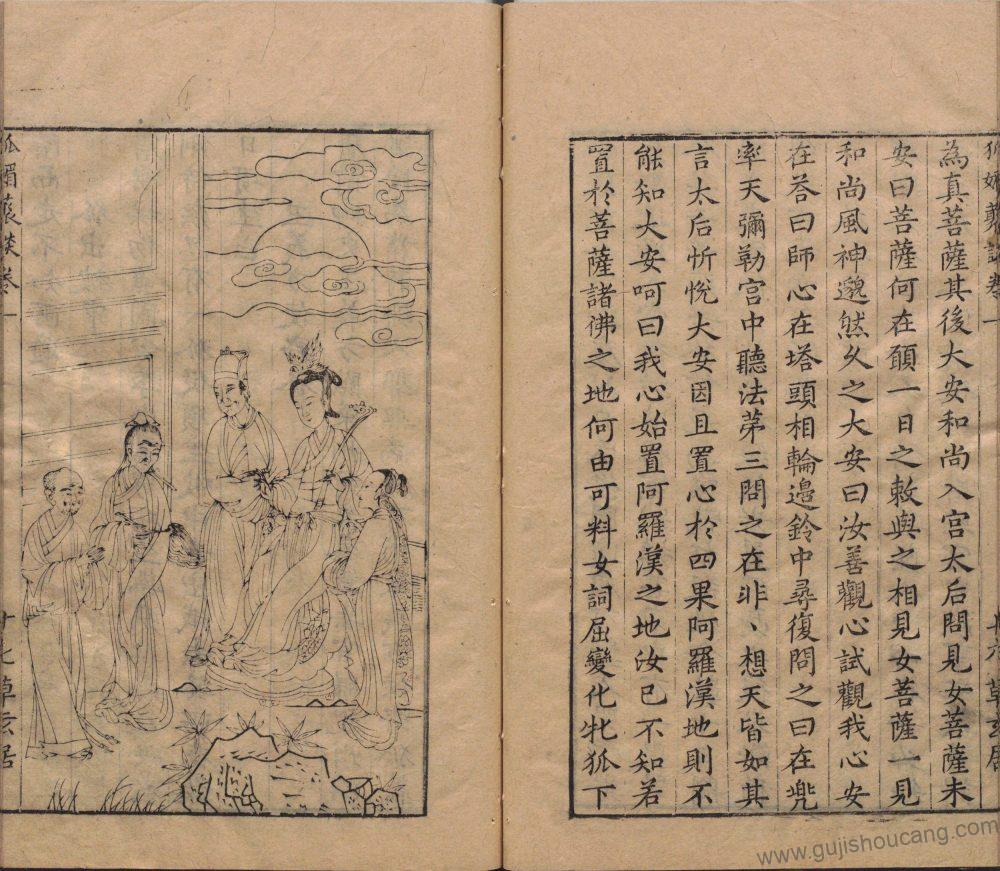 狐媚叢談卷一
為真菩薩其後大安和尚入宮太后問見女菩薩未
安曰菩薩何在願一日之敕與之相見女菩薩一見
和尚風神邈然久之大安曰汝善觀心試觀我心安
在答曰師心在塔頭相輪邊鈴中尋復問之曰在兠
率天彌勒宮中聽法苐三問之在非〻想天皆如其
言太后忻悅大安因且置心於四果阿羅漢地則不
能知大安呵曰我心始置阿羅漢之地汝已不知若
置於菩薩諸佛之地何由可料女詞屈變化牝狐下
草玄居
狐媚叢談卷一
十七草玄居
www.gujishoucang.com